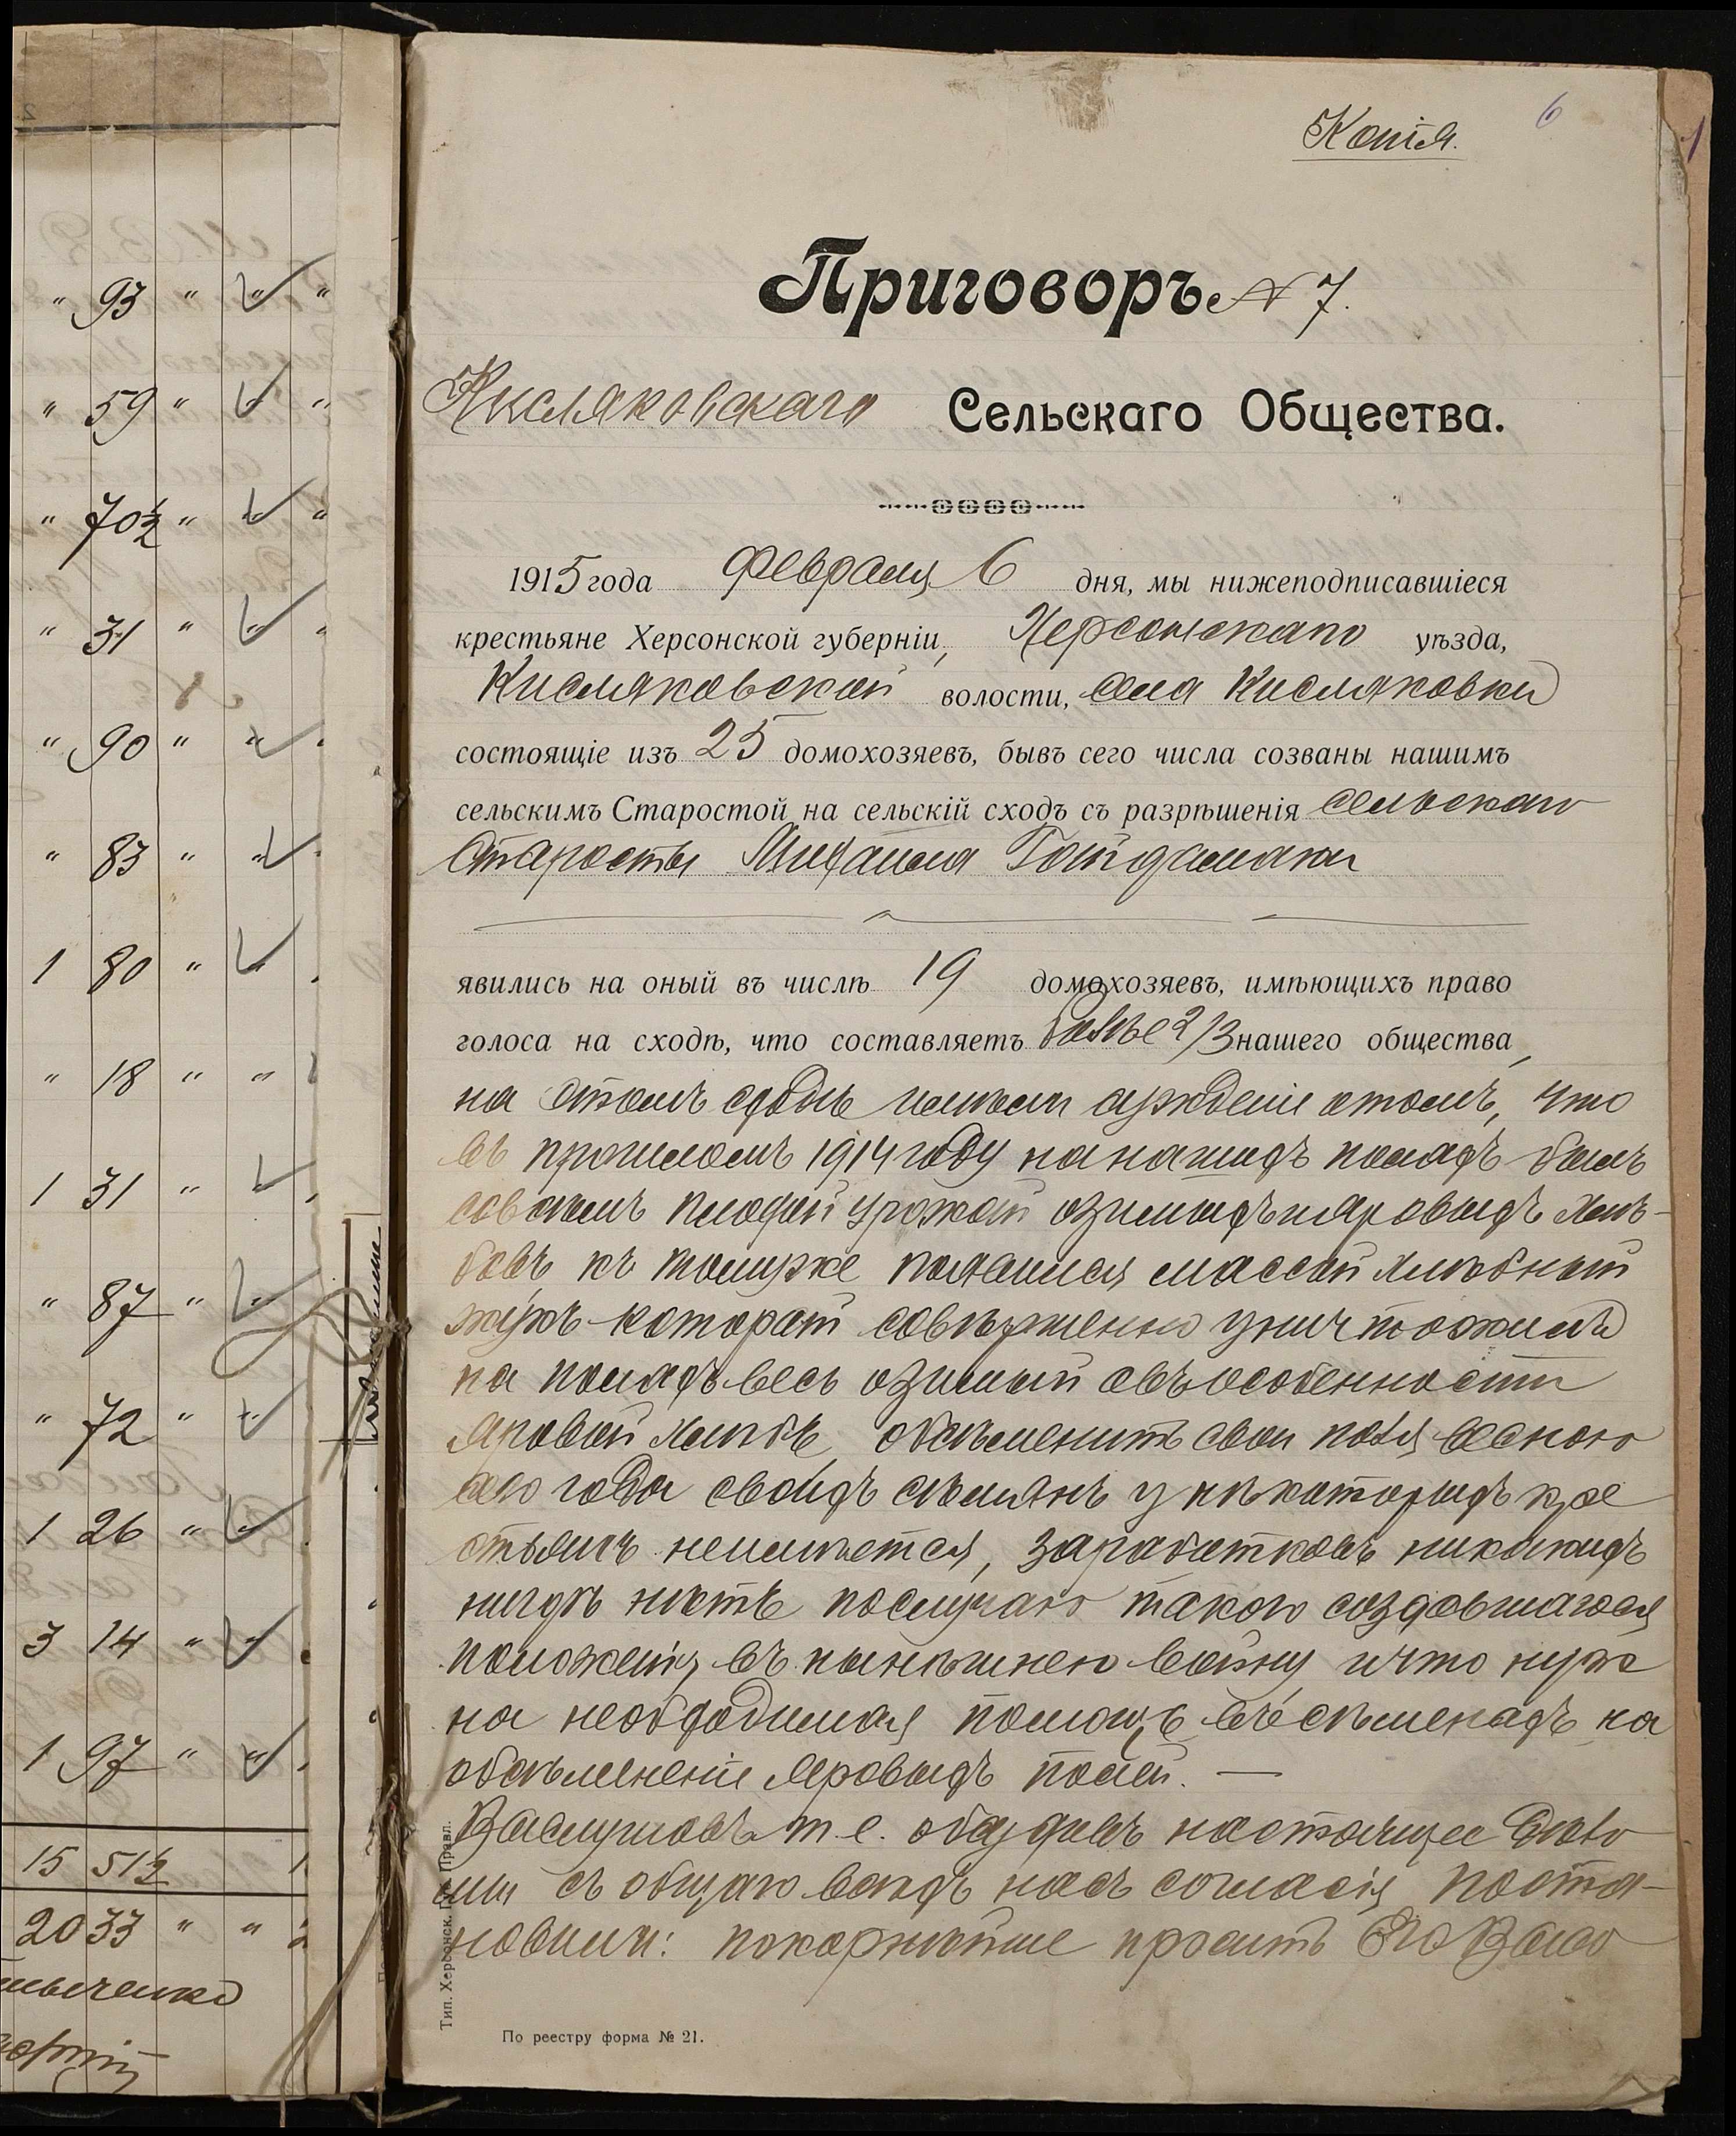 " 93 " " "
" 59 " " "
" 70½ " " "
" 31 " " "
" 90 " "
" 83 " "
1 80 " "
" 18 " "
1 31 "
" 87 "
" 72 "
1 26 "
3 14 "
1 97 " "
15 51½
20 33 " "
Копія.
6
1
Приговоръ № 7.
Кисляковскаго Сельскаго Общества.
1915 года февраля 6 дня, мы нижеподписавшіеся
крестьяне Херсонской губерніи, Херсонскаго уѣзда,
Кисляковской волости, села Кисляковки
состоящіе изъ 25 домохозяевъ, бывъ сего числа созваны нашимъ
сельскимъ Старостой на сельскій сходъ съ разрѣшенія сельскаго
Старосты Михаила Гайдамаки
явились на оный въ числѣ 19 домохозяевъ, имѣющихъ право
голоса на сходѣ, что составляетъ более 2/3 нашего общества,
на этомъ сходѣ имели суждение отомъ, что
въ прошломъ 1914 году на нашихъ поляхъ былъ
совсемъ плохой урожай озимыхъ и яровыхъ хлѣ-
бовъ, къ томуже появился массой хлѣбный
жукъ который совѣршенно уничтожилъ
на поляхъ весь озимый а въ особенности
яровой хлѣбъ, обсѣменить свои поля весною
сего года своихъ сѣмянъ у нѣкоторыхъ кре
стьянъ неимѣется, заработковъ никакихъ
нигдѣ нѣтъ послучаю такого создавшагося
положенія въ нынѣшнею войну и что нуж
на необходимая помощь въ сѣменахъ на
обсѣменение яровыхъ полей. —
Выслушавъ т. е. обсудивъ настоящее дѣло
мы съ общаго всехъ насъ согласія поста-
новили: покорнѣйше просить Его Высо
Тип. Херсонск. Губ. Правл.
По реестру форма № 21.